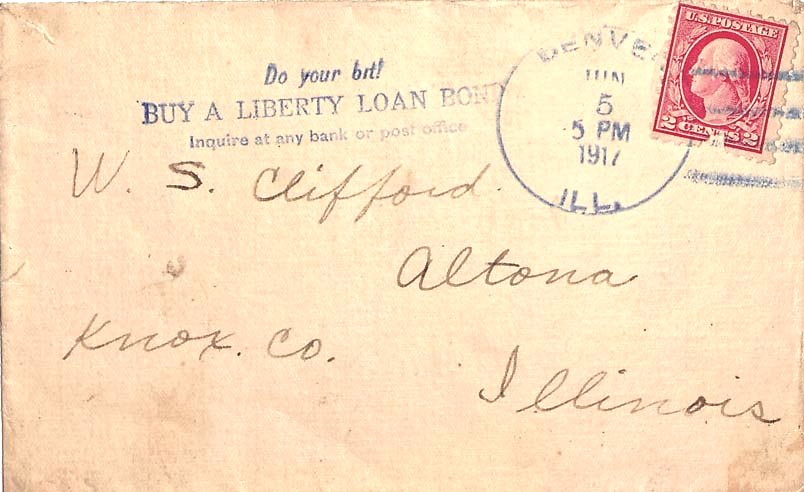 Do your bit!
BUY A LIBERTY LOAN BOND
Inquire at any bank or post office
DENVER
JUN
5
5 PM
1917
ILL.
U.S. POSTAGE
2 CENTS 2
W. S. Clifford.
Altona
Knox. Co.
Illinois